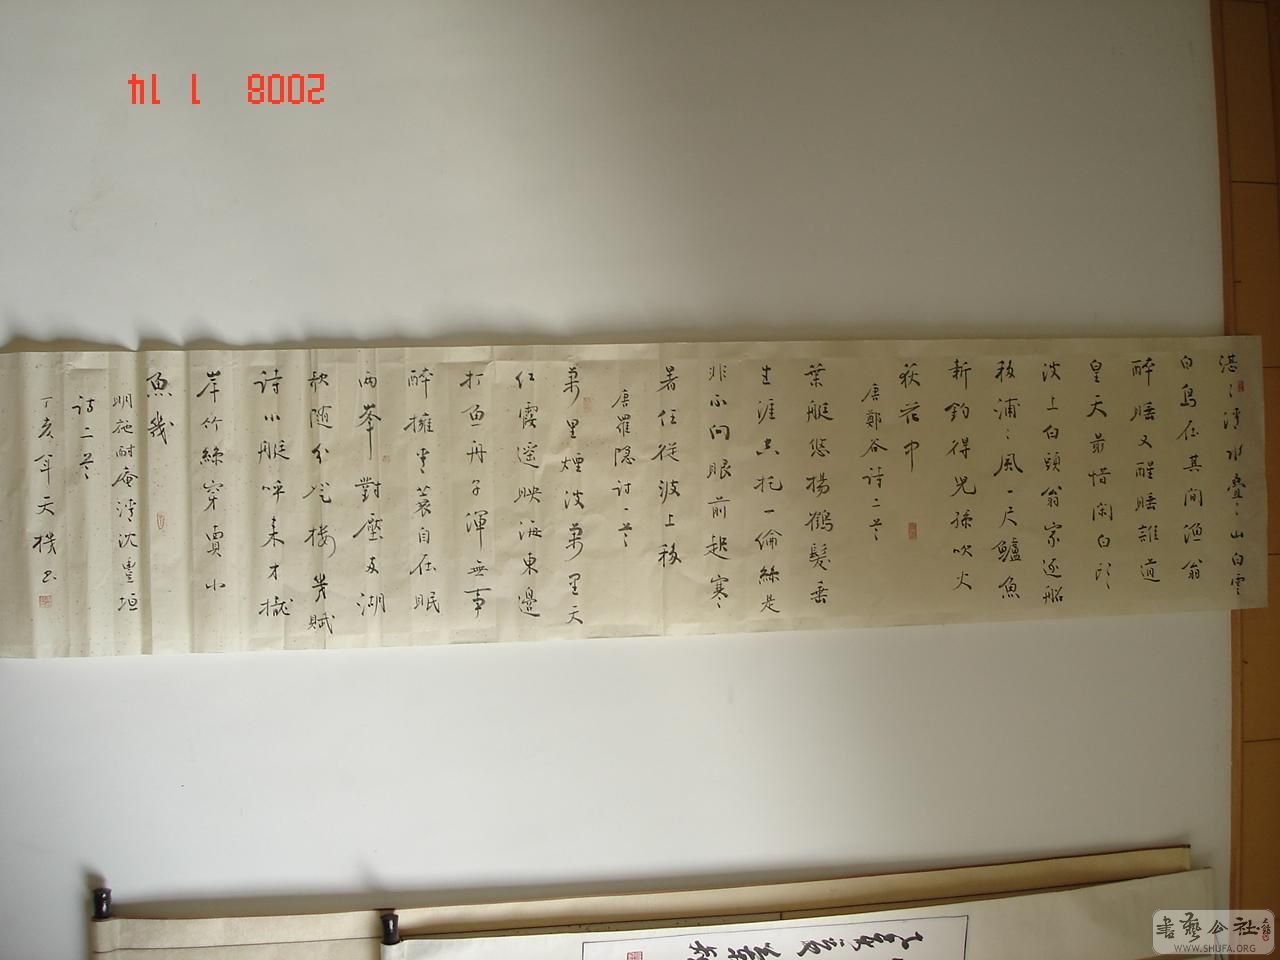 湛〻溪水疊〻山白雲
白鳥在其間漁翁
醉睡又醒睡誰道
皇天最惜閑白頭
波上白頭翁家逐船
移浦〻風一尺鱸魚
新釣得兒孫吹火
荻花中
唐鄭谷詩二首
葉艇悠揚鶴髮垂
生涯空托一綸絲是
非不問眼前起寒
暑任從波上移
唐羅隱詩一首
萬里煙波萬里天
紅霞遙映海東邊
打魚舟子渾無事
醉擁青蓑自在眠
兩峯對壓太湖
秋隨分登樓莫賦
詩小艇呼來才攏
岸竹絲穿賣小
魚幾
明施耐庵清沈豐垣
詩二首
丁亥年天書
2008 1 14
書藝公社
WWW.SHUFA.ORG